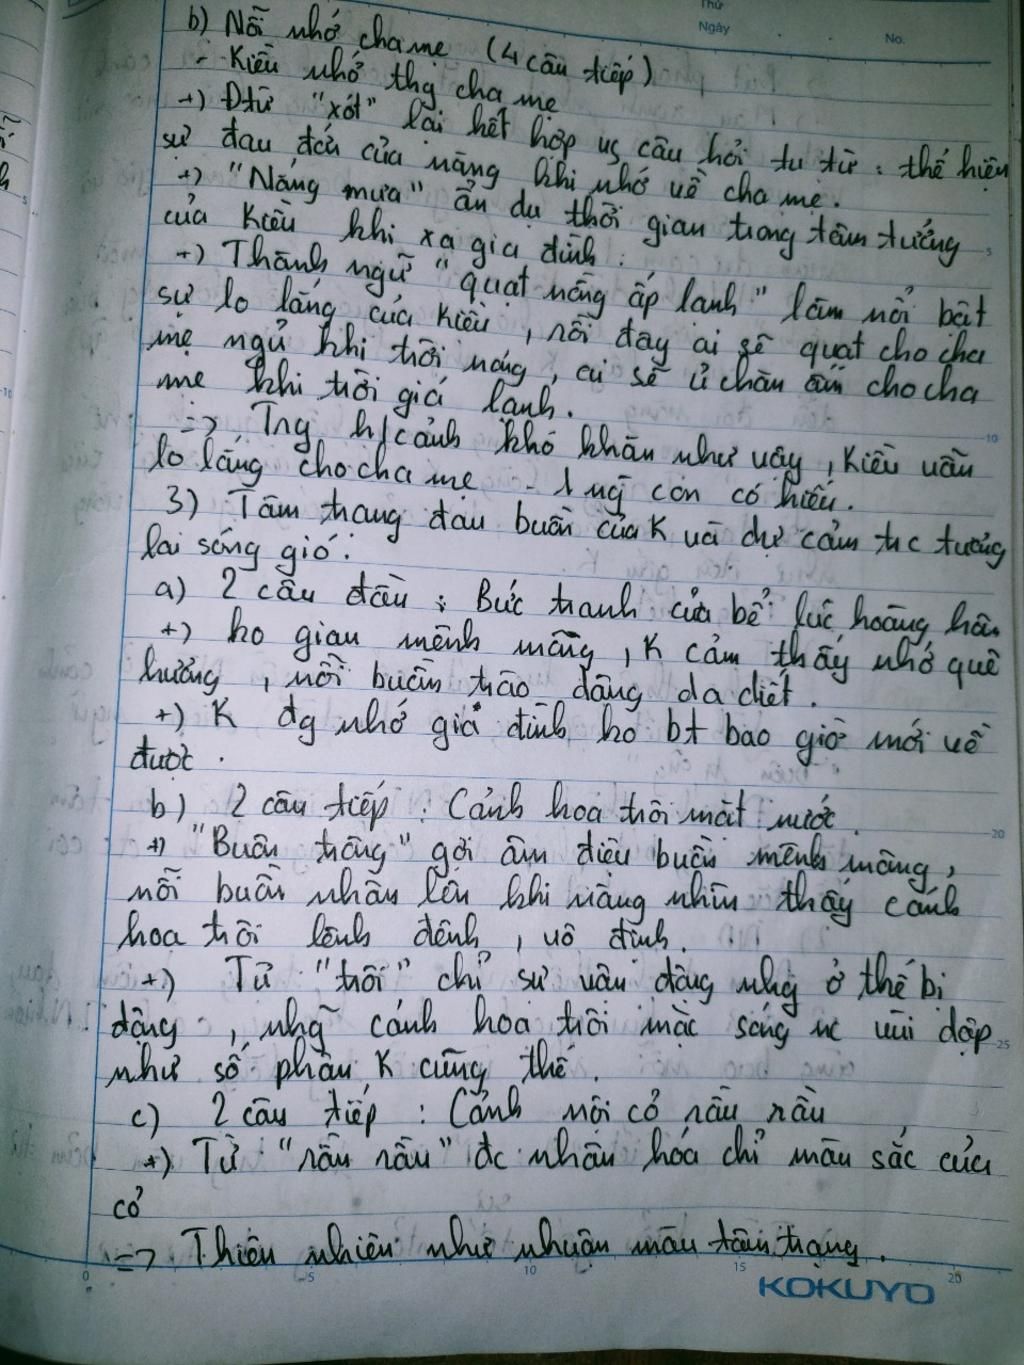 Thứ
Ngày
No.
b) Nỗi nhớ cha mẹ (4 câu tiếp)
- Kiều nhớ thg cha mẹ
+) Đtừ "xót" lại kết hợp vs câu hỏi tu từ : thể hiện
sự đau đớn của nàng khi nhớ về cha mẹ.
+) "Nắng mưa" ẩn dụ thời gian trong tâm tưởng
của Kiều khi xa gia đình.
+) Thành ngữ "quạt nồng ấp lạnh" làm nổi bật
sự lo lắng của Kiều, rồi đây ai sẽ quạt cho cha
mẹ ngủ khi trời nóng, ai sẽ ủ chăn ấm cho cha
mẹ khi trời giá lạnh.
=> Trg h/cảnh khó khăn như vậy, Kiều vẫn
lo lắng cho cha mẹ - 1 ng con có hiếu.
3) Tâm trạng đau buồn của K và dự cảm trc tương
lai sóng gió:
a) 2 câu đầu : Bức tranh cửa bể lúc hoàng hôn
+) ko gian mênh mông, K cảm thấy nhớ quê
hương, nỗi buồn trào dâng da diết.
+) K đg nhớ gia đình ko bt bao giờ mới về
được.
b) 2 câu tiếp : Cảnh hoa trôi mặt nước.
+) "Buồn trông" gợi âm điệu buồn mênh mông,
nỗi buồn nhân lên khi nàng nhìn thấy cánh
hoa trôi lênh đênh, vô định.
+) Từ "trôi" chỉ sự vận động nhg ở thế bị
động, nhg cánh hoa trôi mặc sóng nc vùi dập
như số phận K cũng thế.
c) 2 câu tiếp : Cảnh nội cỏ rầu rầu
+) Từ "rầu rầu" đc nhân hóa chỉ màu sắc của
cỏ
=> Thiên nhiên như nhuộm màu tâm trạng.
5
10
20
25
0 5 10 15 20
KOKUYO